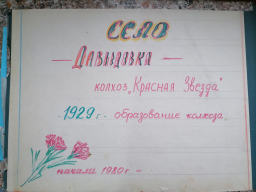 СЕЛО
Давыдовка
колхоз „Красная Звезда"
1929 г. образование колхоза.
начали 1980 г –